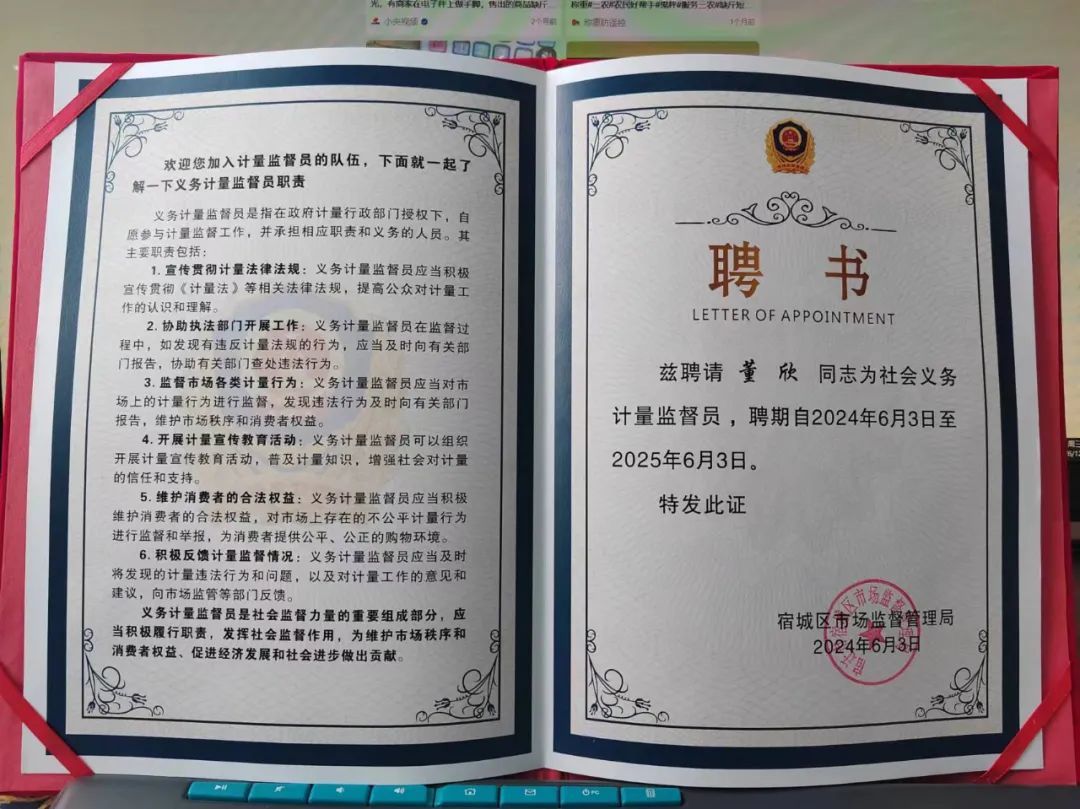 光，有商家在电子秤上做手脚，售出的商品缺斤...
小央视频
2个月前
称重#三农#农民好帮手#鬼秤#服务三农#缺斤短...
1个月前
欢迎您加入计量监督员的队伍，下面就一起了
解一下义务计量监督员职责
义务计量监督员是指在政府计量行政部门授权下，自
愿参与计量监督工作，并承担相应职责和义务的人员。其
主要职责包括：
1. 宣传贯彻计量法律法规：义务计量监督员应当积极
宣传贯彻《计量法》等相关法律法规，提高公众对计量工
作的认识和理解。
2. 协助执法部门开展工作：义务计量监督员在监督过
程中，如发现有违反计量法规的行为，应当及时向有关部
门报告，协助有关部门查处违法行为。
3. 监督市场各类计量行为：义务计量监督员应当对市
场上的计量行为进行监督，发现违法行为及时向有关部门
报告，维护市场秩序和消费者权益。
4. 开展计量宣传教育活动：义务计量监督员可以组织
开展计量宣传教育活动，普及计量知识，增强社会对计量
的信任和支持。
5. 维护消费者的合法权益：义务计量监督员应当积极
维护消费者的合法权益，对市场上存在的不公平计量行为
进行监督和举报，为消费者提供公平、公正的购物环境。
6. 积极反馈计量监督情况：义务计量监督员应当及时
将发现的计量违法行为和问题，以及对计量工作的意见和
建议，向市场监管等部门反馈。
义务计量监督员是社会监督力量的重要组成部分，应
当积极履行职责，发挥社会监督作用，为维护市场秩序和
消费者权益、促进经济发展和社会进步做出贡献。
聘 书
LETTER OF APPOINTMENT
兹聘请 董 欣 同志为社会义务
计量监督员，聘期自2024年6月3日至
2025年6月3日。
特发此证
宿城区市场监督管理局
2024年6月3日
PC